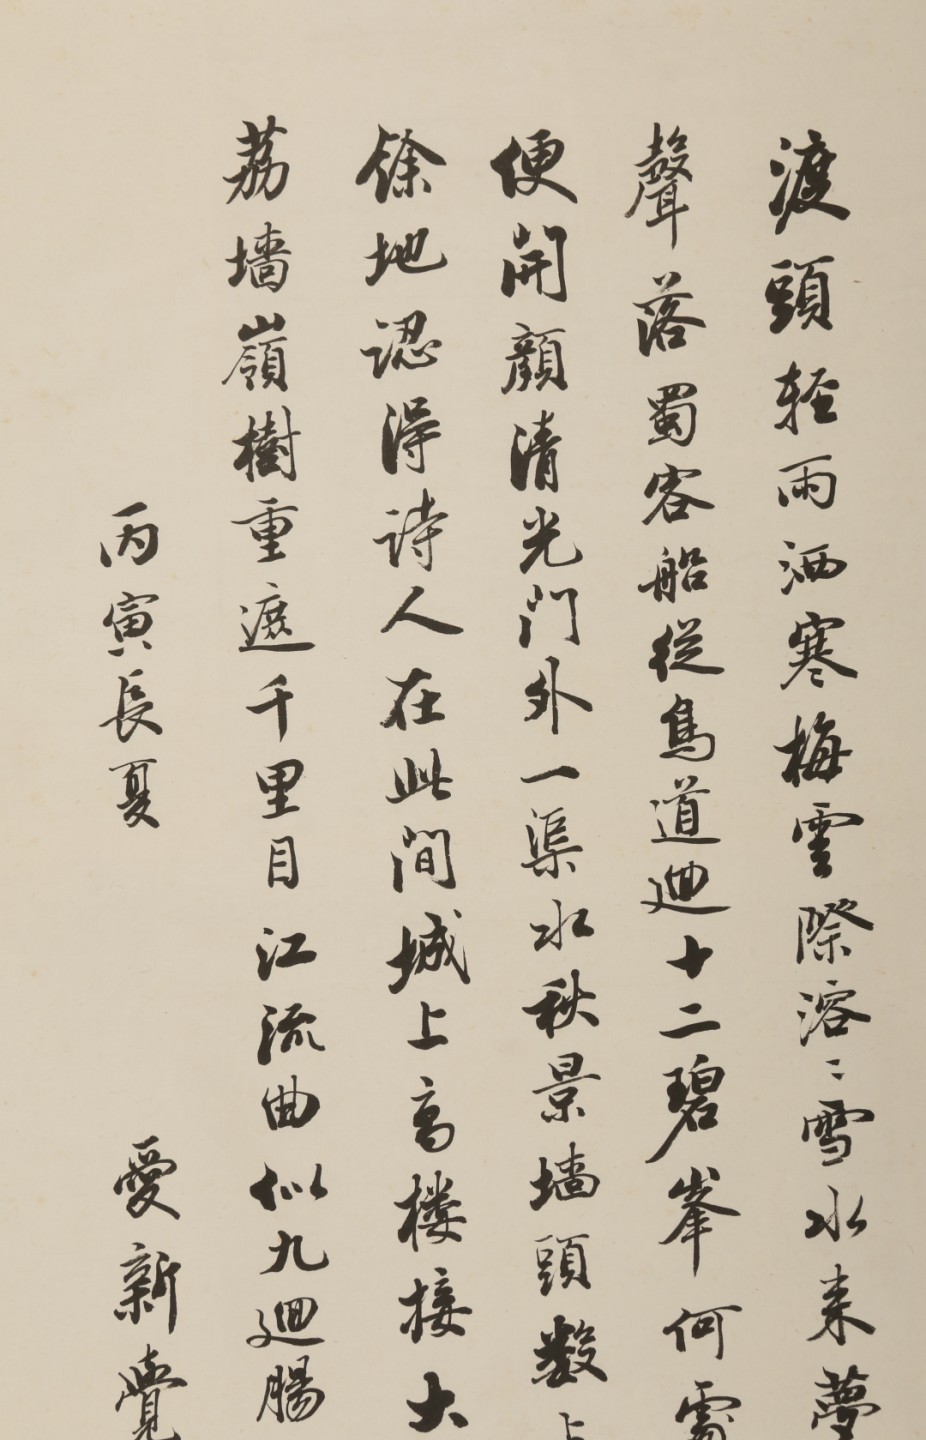 渡頭轻雨洒寒梅雲際溶〻雪水来夢
聲落蜀客船從鳥道迴十二碧峯何處
便開顔清光门外一渠水秋景墙頭数
餘地認得诗人在此間城上高楼接大
荔墙嶺樹重遮千里目江流曲似九迴腸
丙寅長夏
愛新覺